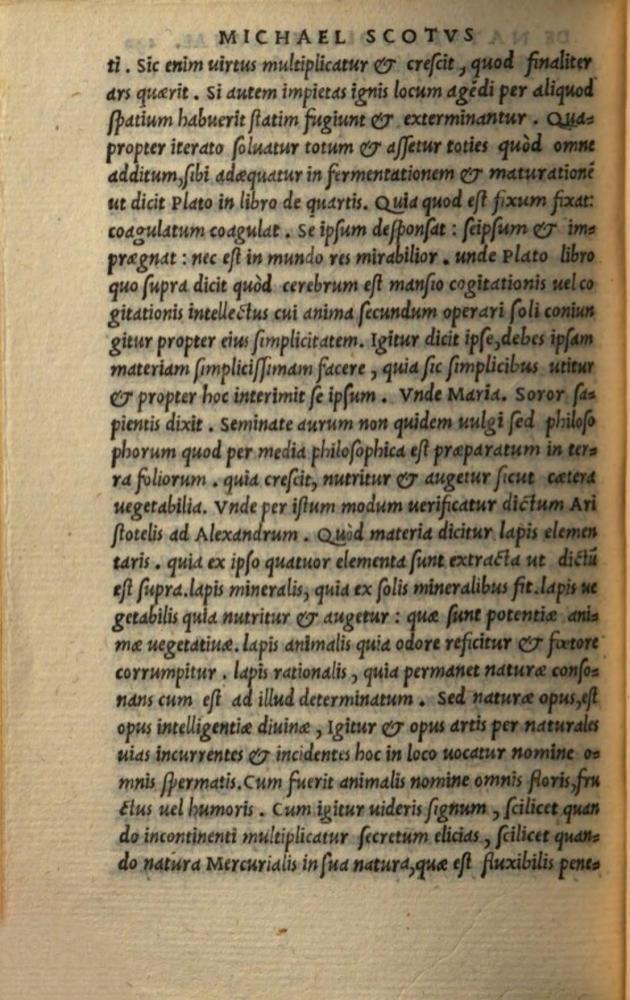 MICHAEL SCOTVS
ti. Sic enim uirtus multiplicatur & creſcit, quod finaliter
ars quærit. Si autem impietas ignis locum agēdi per aliquod
ſpatium habuerit ſtatim fugiunt & exterminantur. Qua=
propter iterato ſoluatur totum & aſſetur toties quòd omne
additum, ſibi adæquatur in fermentationem & maturationē
ut dicit Plato in libro de quartis. Quia quod eſt fixum fixat:
coagulatum coagulat. Se ipſum deſponſat: ſeipſum & im=
prægnat: nec eſt in mundo res mirabilior. unde Plato libro
quo ſupra dicit quòd cerebrum eſt manſio cogitationis uel co
gitationis intellectus cui anima ſecundum operari ſoli coniun
gitur propter eius ſimplicitatem. Igitur dicit ipſe, debes ipſam
materiam ſimpliciſſimam facere, quia ſic ſimplicibus utitur
& propter hoc interimit ſe ipſum. Vnde Maria. Soror ſa=
pientis dixit. Seminate aurum non quidem uulgi ſed philoſo
phorum quod per media philoſophica eſt præparatum in ter=
ra foliorum. quia creſcit, nutritur & augetur ſicut cætera
uegetabilia. Vnde per iſtum modum uerificatur dictum Ari
ſtotelis ad Alexandrum. Quòd materia dicitur lapis elemen
taris. quia ex ipſo quatuor elementa ſunt extracta ut dictū
eſt ſupra. lapis mineralis, quia ex ſolis mineralibus fit. lapis ue
getabilis quia nutritur & augetur: quæ ſunt potentiæ ani=
mæ uegetatiuæ. lapis animalis quia odore reficitur & fœtore
corrumpitur. lapis rationalis, quia permanet naturæ conſo=
nans cum eſt ad illud determinatum. Sed naturæ opus, eſt
opus intelligentiæ diuinæ, Igitur & opus artis per naturales
uias incurrentes & incidentes hoc in loco uocatur nomine o=
mnis ſpermatis. Cum fuerit animalis nomine omnis floris, fru
ctus uel humoris. Cum igitur uideris ſignum, ſcilicet quan
do incontinenti multiplicatur ſecretum elicias, ſcilicet quan=
do natura Mercurialis in ſua natura, quæ eſt fluxibilis pene=